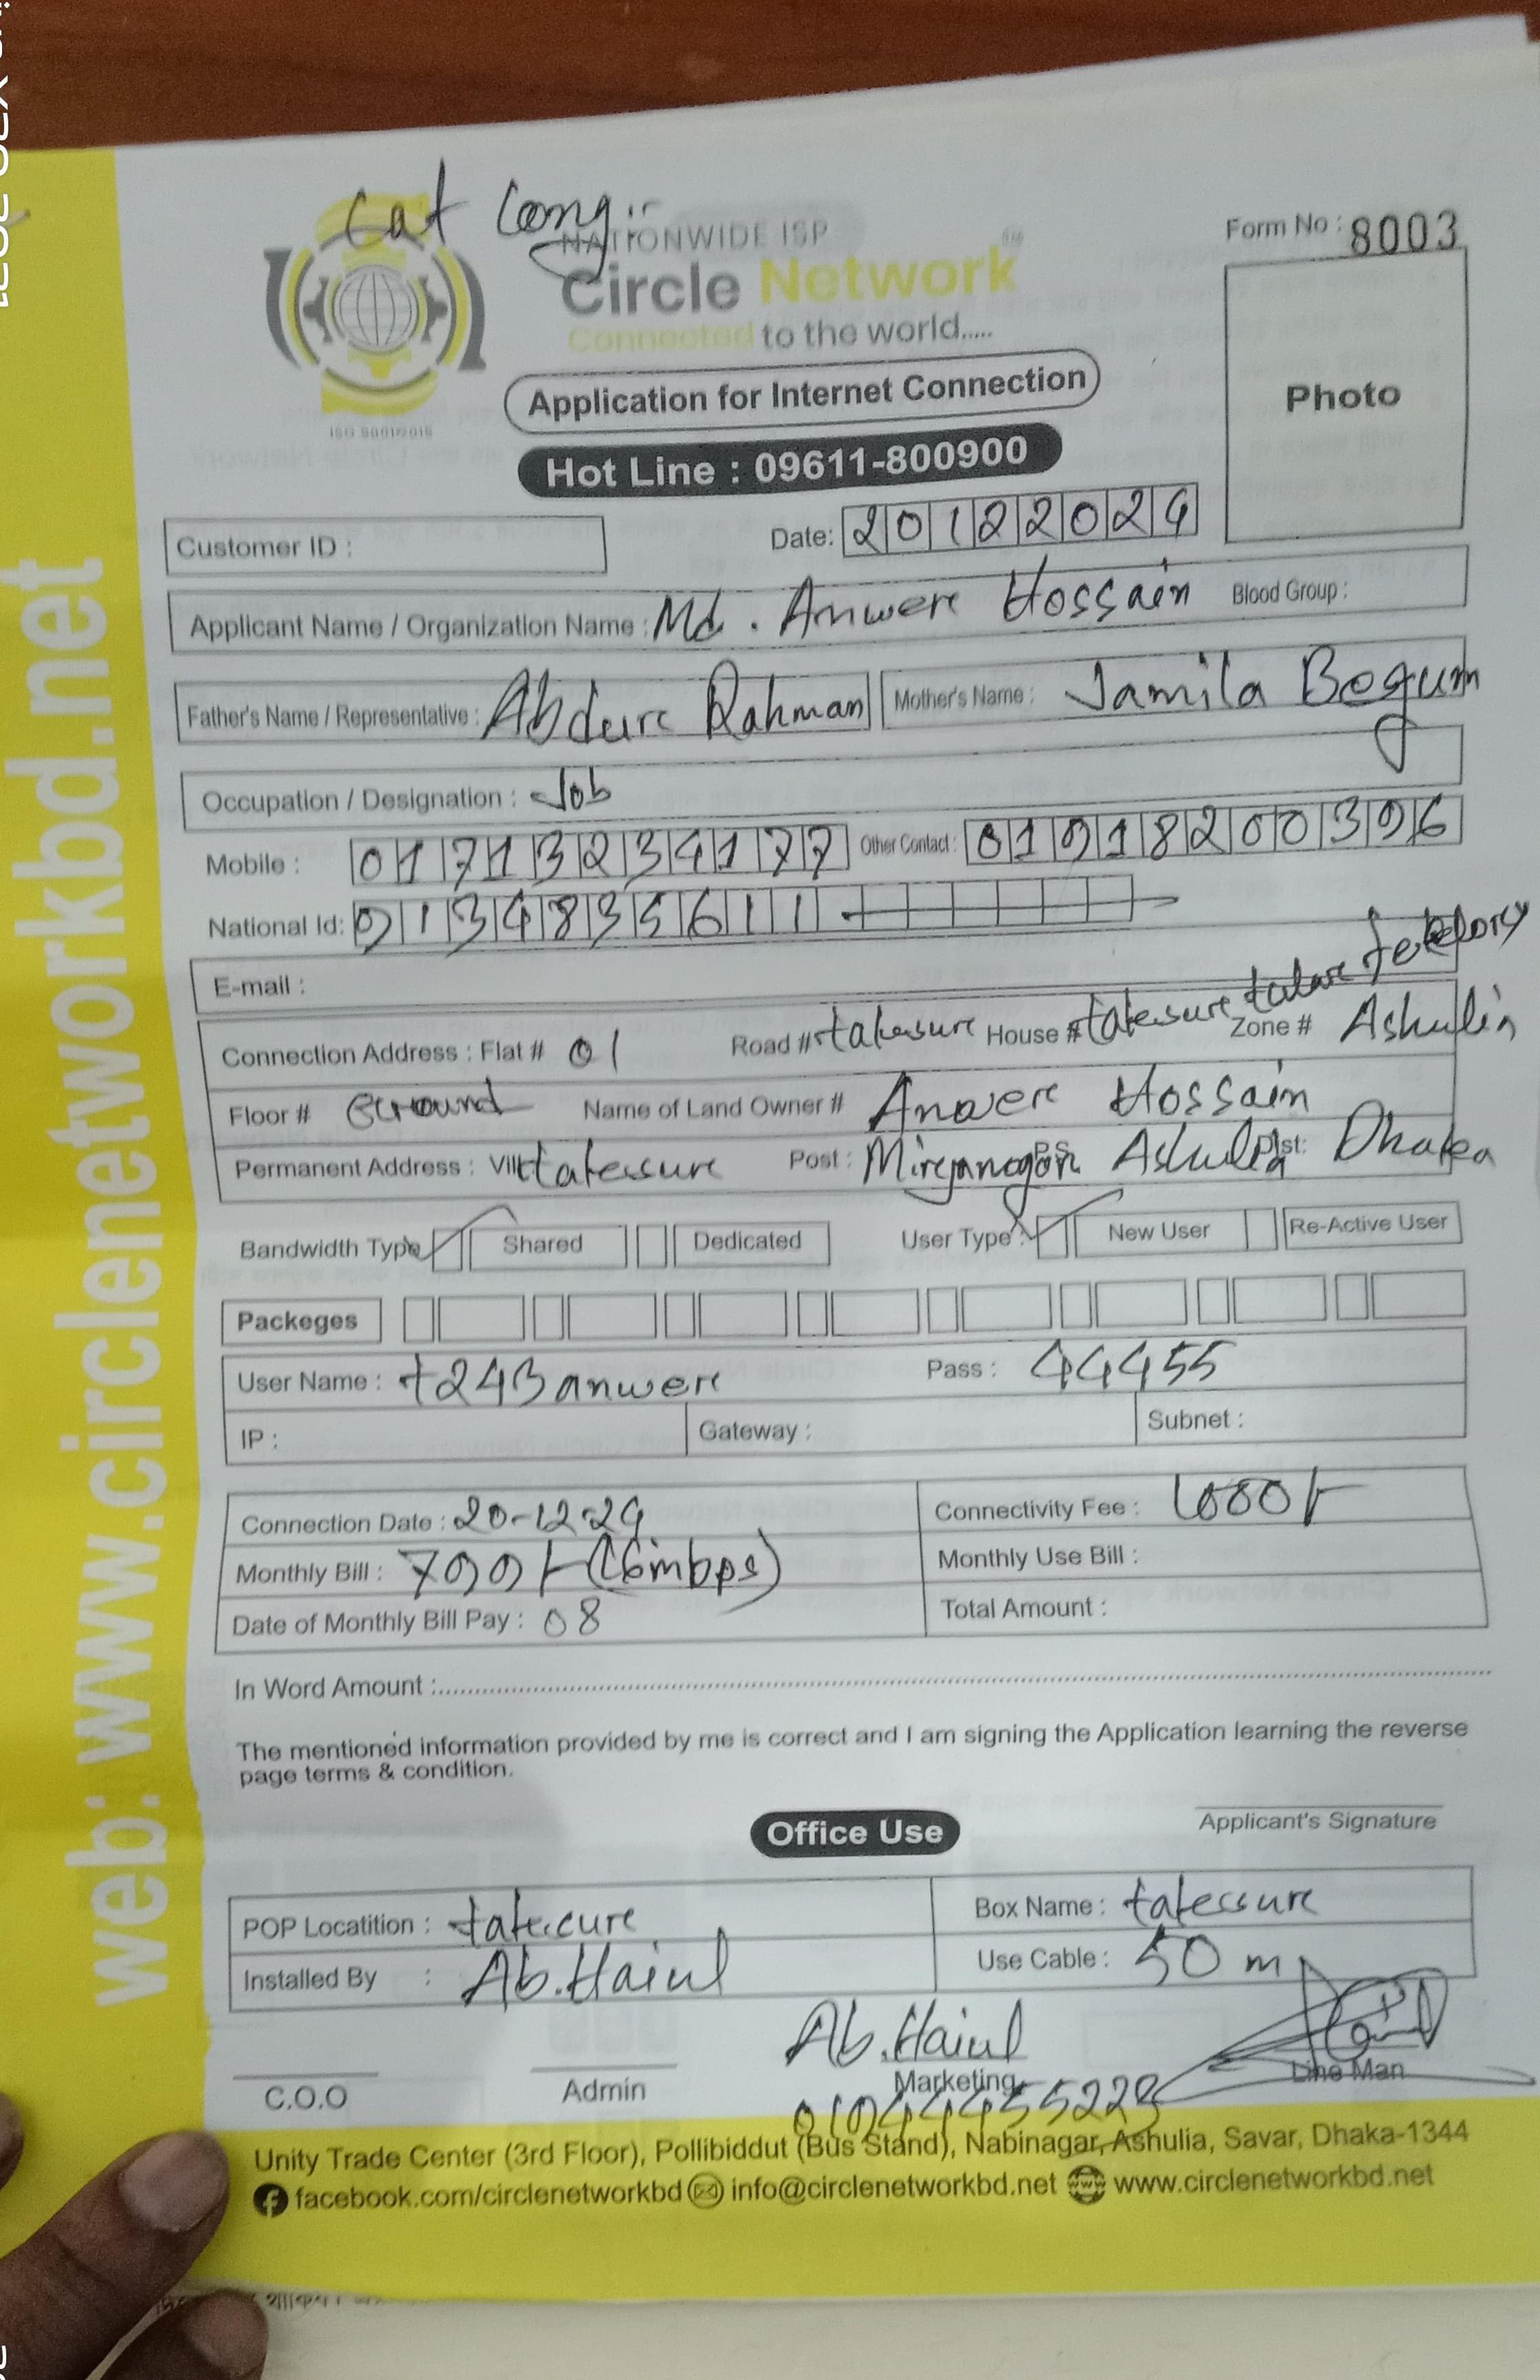 cat
NATIONWIDE ISP
Form No : 8003
Circle Network
Connected to the world.....
Photo
Application for Internet Connection
ISO 9001:2015
Hot Line : 09611-800900
Customer ID :
Date: 20122024
Applicant Name / Organization Name : Md. Anwere Hossain Blood Group :
Father's Name / Representative : Abdure Rahman Mother's Name : Jamila Begum
Occupation / Designation : Job
Mobile : 01713234177 Other Contact : 01918200396
National Id: 9134835611
E-mail :
Connection Address : Flat # 01 Road # House # Zone # Ashulia
Floor # Ground Name of Land Owner # Anwere Hossain
Permanent Address : Vill: Post : P.S: Ashulia Dist: Dhaka
Bandwidth Type Shared Dedicated User Type : New User Re-Active User
Packeges
User Name : t243anwere Pass : 44455
IP : Gateway : Subnet :
Connection Date : 20-12-24 Connectivity Fee : 1000/-
Monthly Bill : 799/- (16mbps) Monthly Use Bill :
Date of Monthly Bill Pay : 08 Total Amount :
In Word Amount :
The mentioned information provided by me is correct and I am signing the Application learning the reverse
page terms & condition.
Applicant's Signature
Office Use
POP Locatition : Box Name :
Installed By : Ab.Haiul Use Cable : 50 m
Ab.Haiul
C.O.O Admin Marketing Line Man
Unity Trade Center (3rd Floor), Pollibiddut (Bus Stand), Nabinagar, Ashulia, Savar, Dhaka-1344
facebook.com/circlenetworkbd info@circlenetworkbd.net www.circlenetworkbd.net
web: www.circlenetworkbd.net